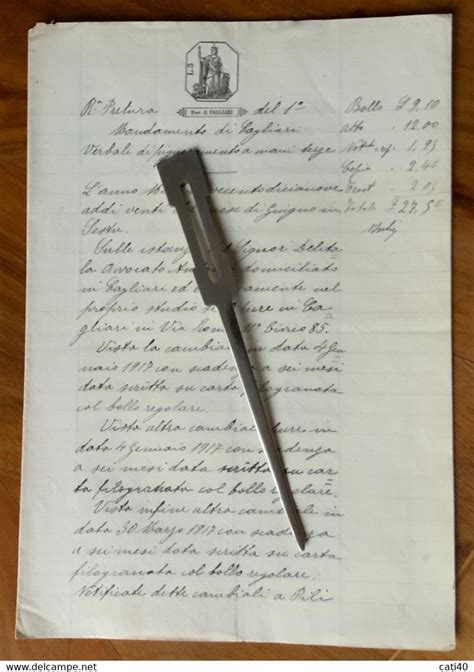 L3
Proc. di CAGLIARI
Rª Pretura del 1º
Mandamento di Cagliari
Verbale di pignoramento a mani terze
Bollo £ 9.10
atto 12.00
Copia 2.40
Totale £ 27.50
L'anno
addì venti mese di Giugno in
Sestu.
Sulle istanze Signor Delita=
la Avvocato domiciliato
in Cagliari ed nel
proprio studio in Ca=
gliari in Via Roma Nº Civico 85.
Vista la cambiale in data 4 Gen=
naio 1917 con scadenza a sei mesi
data scritta su carta filogranata
col bollo regolare.
Vista altra cambiale pure in
data 4 Gennaio 1917 con scadenza
a sei mesi data scritta su car=
ta filogranata col bollo regolare.
Vista infine altra cambiale in
data 30 Marzo 1917 con scadenza
a sei mesi data scritta su carta
filogranata col bollo regolare.
Notificate dette cambiali a Pili
cati40